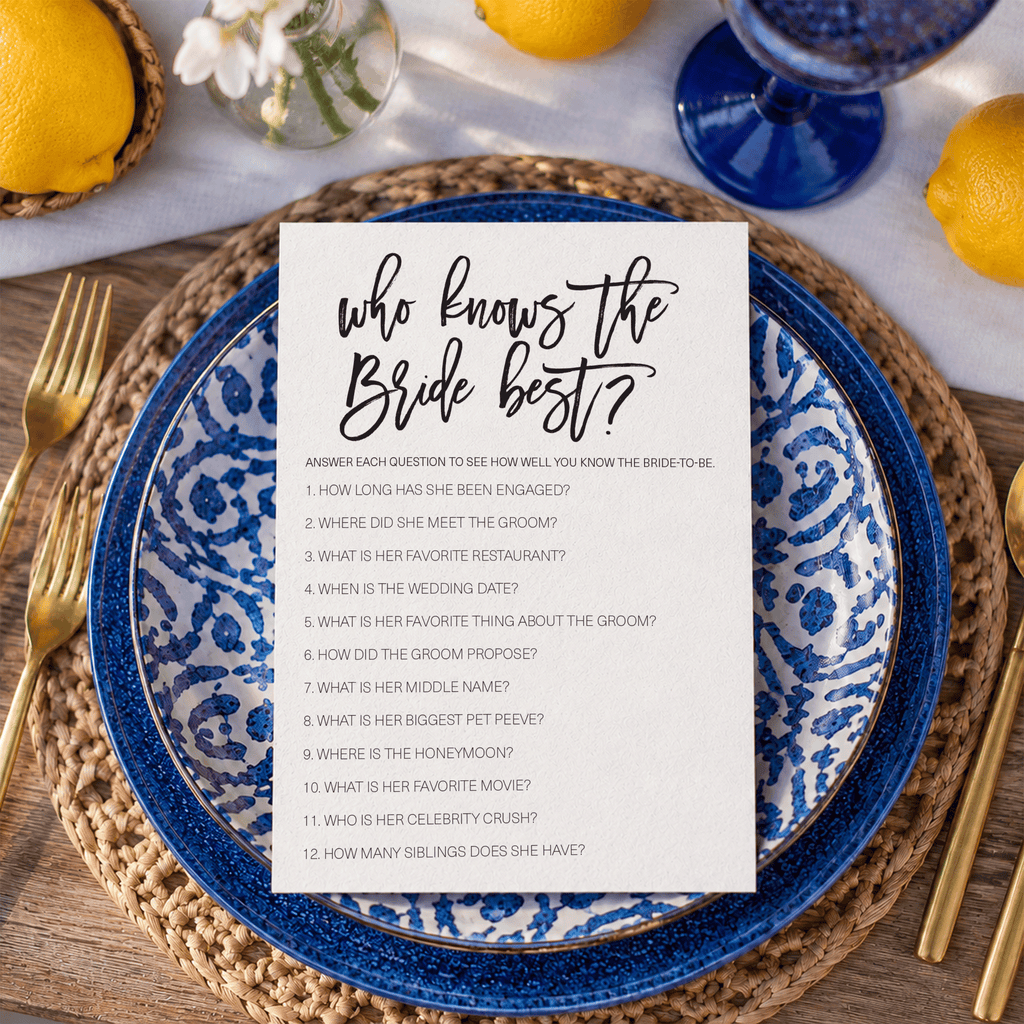 who knows the
Bride best?
ANSWER EACH QUESTION TO SEE HOW WELL YOU KNOW THE BRIDE-TO-BE.
1. HOW LONG HAS SHE BEEN ENGAGED?
2. WHERE DID SHE MEET THE GROOM?
3. WHAT IS HER FAVORITE RESTAURANT?
4. WHEN IS THE WEDDING DATE?
5. WHAT IS HER FAVORITE THING ABOUT THE GROOM?
6. HOW DID THE GROOM PROPOSE?
7. WHAT IS HER MIDDLE NAME?
8. WHAT IS HER BIGGEST PET PEEVE?
9. WHERE IS THE HONEYMOON?
10. WHAT IS HER FAVORITE MOVIE?
11. WHO IS HER CELEBRITY CRUSH?
12. HOW MANY SIBLINGS DOES SHE HAVE?